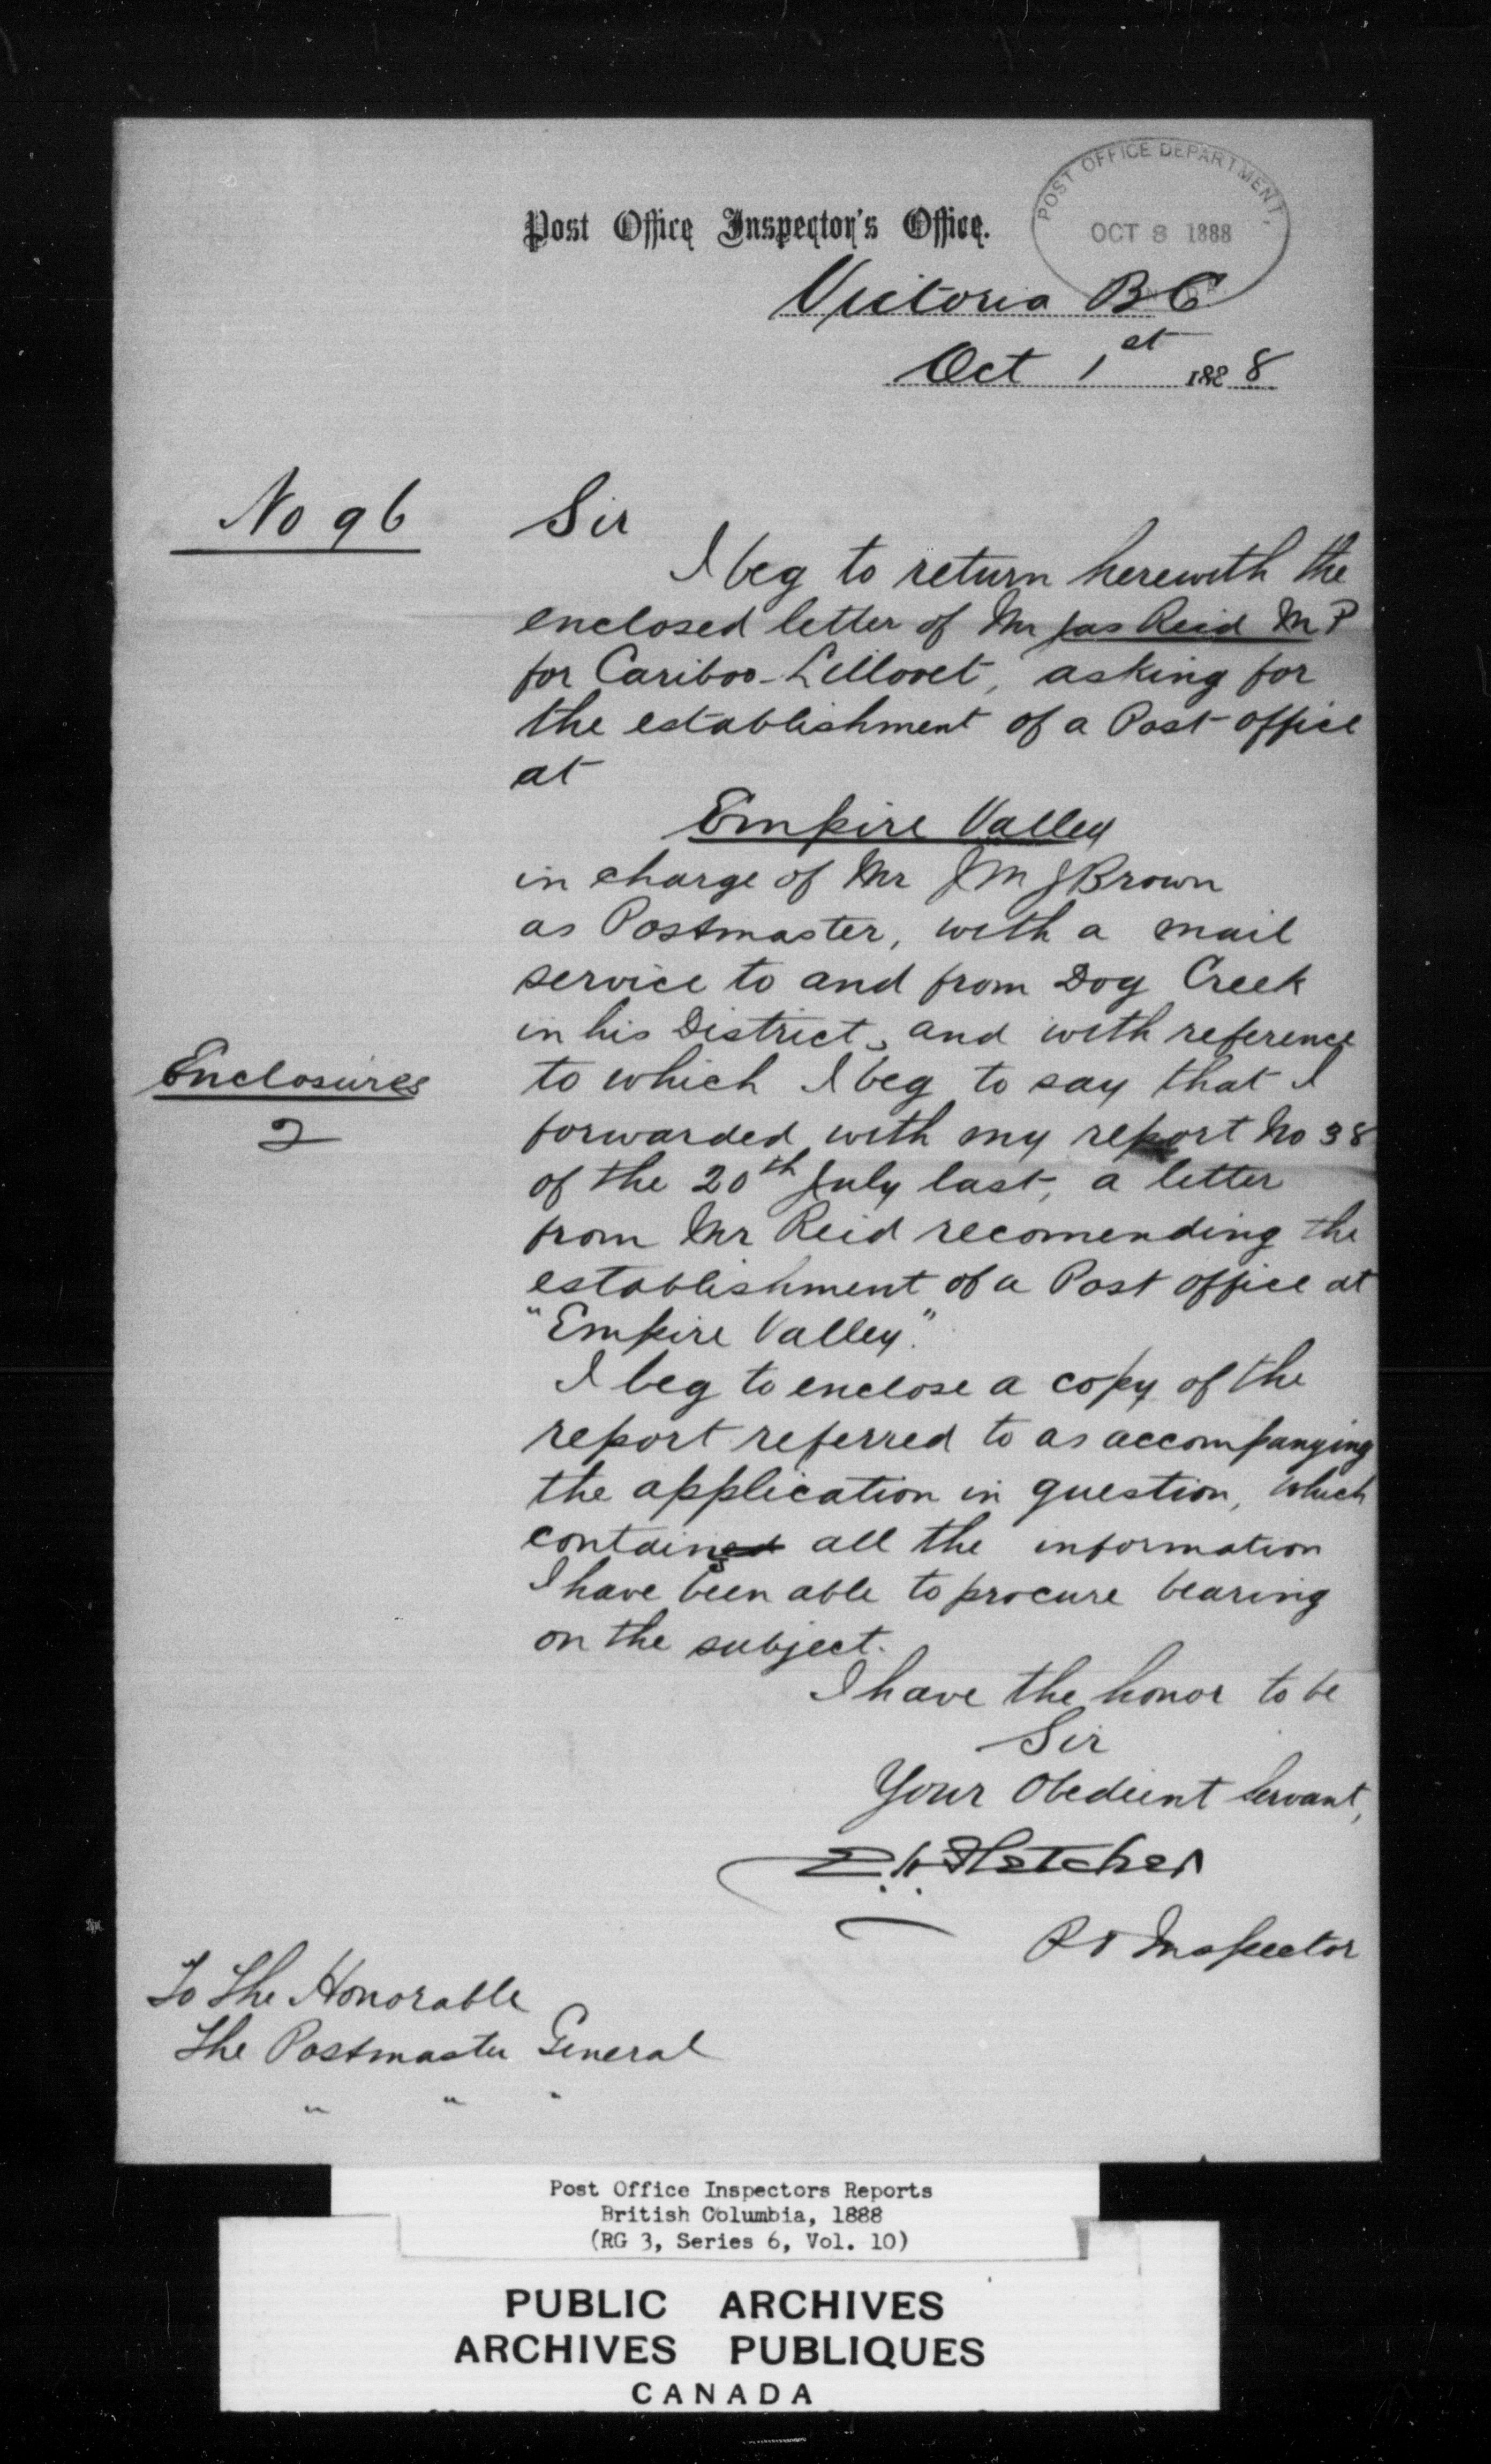 POST OFFICE DEPARTMENT,
OCT 8 1888
Post Office Inspector's Office.
Victoria B C
Oct 1st 1888
No 96
Sir
I beg to return herewith the
enclosed letter of Mr Jas Reid M P
for Cariboo-Lillooet, asking for
the establishment of a Post office
at
Empire Valley
in charge of Mr J M J Brown
as Postmaster, with a mail
service to and from Dog Creek
in his District, and with reference
Enclosures
2
to which I beg to say that I
forwarded with my report No 38
of the 20th July last, a letter
from Mr Reid recomending the
establishment of a Post office at
"Empire Valley."
I beg to enclose a copy of the
report referred to as accompanying
the application in question, which
contains all the information
I have been able to procure bearing
on the subject.
I have the honor to be
Sir
Your Obedient Servant,
E. H. Fletcher
P O Inspector
To The Honorable
The Postmaster General
" " "
Post Office Inspectors Reports
British Columbia, 1888
(RG 3, Series 6, Vol. 10)
PUBLIC ARCHIVES
ARCHIVES PUBLIQUES
CANADA